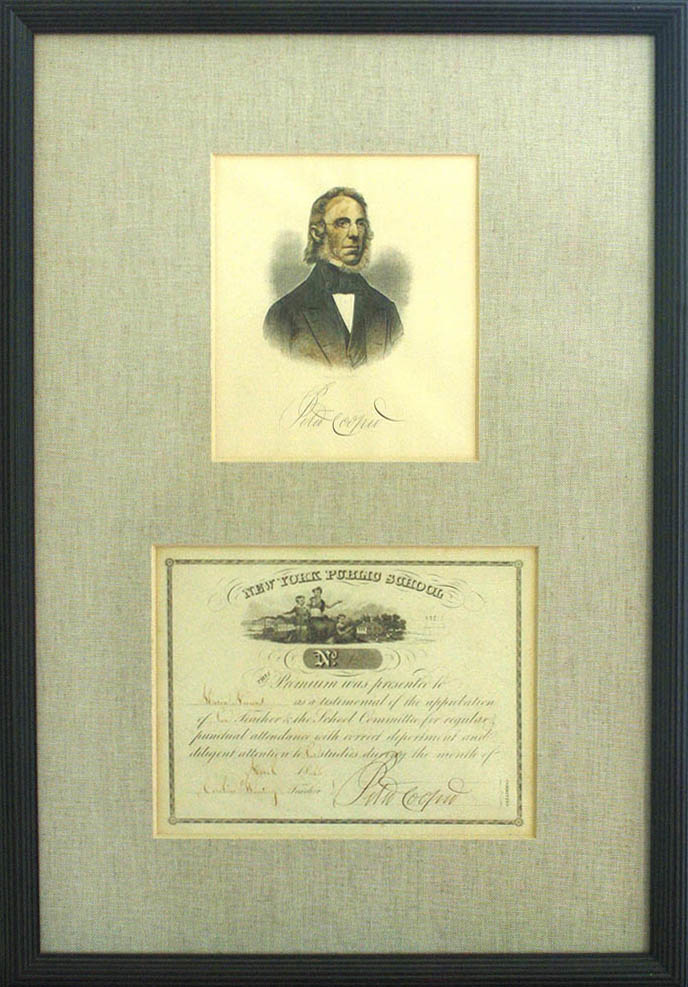 Peter Cooper
NEW YORK PUBLIC SCHOOL
No.
THIS Premium was presented to
as a testimonial of the approbation
of Teacher & the School Committee for regular &
punctual attendance with correct deportment and
diligent attention to studies during the month of
April 18
Caroline Teacher Peter Cooper